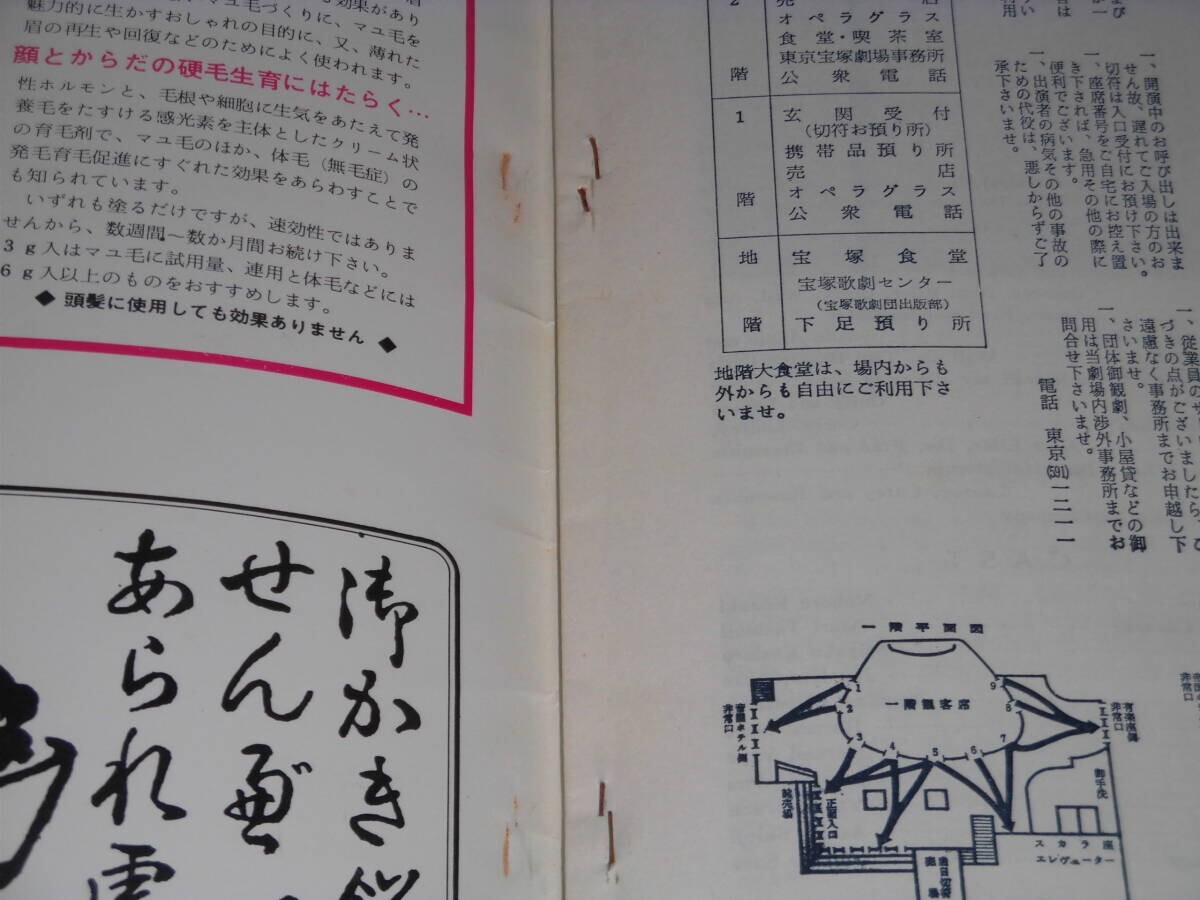 魅力的に生かすおしゃれの目的に、又、薄れた
眉の再生や回復などのためによく使われます。
顔とからだの硬毛生育にはたらく…
性ホルモンと、毛根や細胞に生気をあたえて発
養毛をたすける感光素を主体としたクリーム状
の育毛剤で、マユ毛のほか、体毛（無毛症）の
発毛育毛促進にすぐれた効果をあらわすことで
も知られています。
いずれも塗るだけですが、速効性ではありま
せんから、数週間〜数か月間お続け下さい。
3g入はマユ毛に試用量、連用と体毛などには
6g入以上のものをおすすめします。
◆ 頭髪に使用しても効果ありません ◆
御かき
せんべ
あられ
2
階
売店
オペラグラス
食堂・喫茶室
東京宝塚劇場事務所
公衆電話
1
階
玄関受付
（切符お預り所）
携帯品預り所
売店
オペラグラス
公衆電話
地
階
宝塚食堂
宝塚歌劇センター
（宝塚歌劇団出版部）
下足預り所
地階大食堂は、場内からも
外からも自由にご利用下さ
いませ。
一、開演中のお呼び出しは出来ま
せん故、遅れてご入場の方のお
切符は入口受付にお預け下さい。
一、座席番号をご自宅にお控え置
き下されば、急用その他の際に
便利でございます。
一、出演者の病気その他の事故の
ための代役は、悪しからずご了
承下さいませ。
一、従業員のサ
づきの点がございましたら、
遠慮なく事務所までお申越し下
さいませ。
一、団体御観劇、小屋貸などの御
用は当劇場内渉外事務所までお
問合せ下さいませ。
電話 東京(591)一二一一
一階平面図
一階観客席
1
2
3
4
5
6
7
8
9
帝国ホテル側
非常口
有楽座側
非常口
御手洗
正面入口
前売場
当日切符
売場
スカラ座
エレヴェーター
非常口